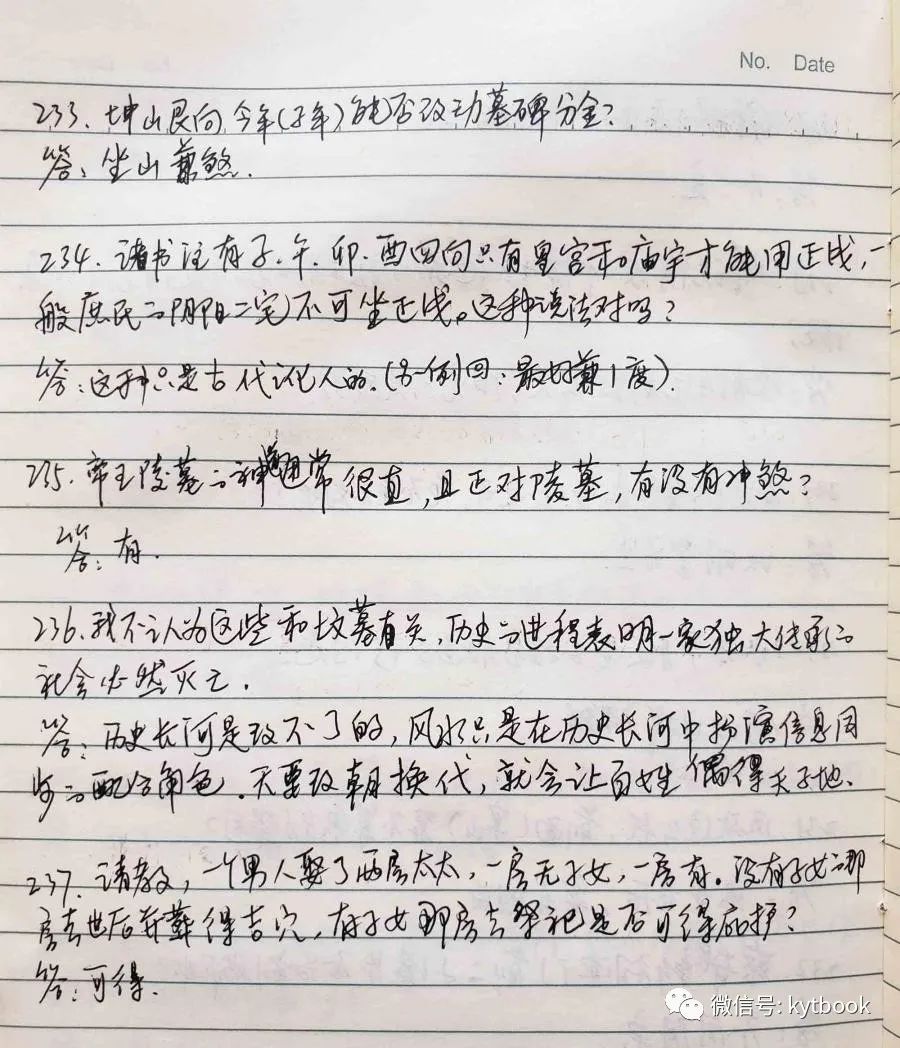 No. Date
233. 坤山艮向,今年(子年)能否改动墓碑分金?
答:坐山兼煞.
234. 诸书注有子.午.卯.酉四向只有皇宫和庙宇才能用正线,一
般庶民の阴阳二宅不可坐正线。这种说法对吗?
答:这种只是古代讹人的.(另一例回:最好兼1度).
235. 帝王陵墓の神道通常很直,且正对陵墓,有没有冲煞?
答:有.
236. 我不认为这些和坟墓有关,历史の进程表明一家独大传承の
社会必然灭亡.
答:历史长河是改不了的,风水只是在历史长河中扮演信息同
步の配合角色.天要改朝换代,就会让百姓偶得天子地.
237. 请教,一个男人娶了两房太太,一房无子女,一房有。没有子女の那
房去世后并葬得吉穴,有子女那房去祭祀是否可得庇护?
答:可得.
微信号: kytbook